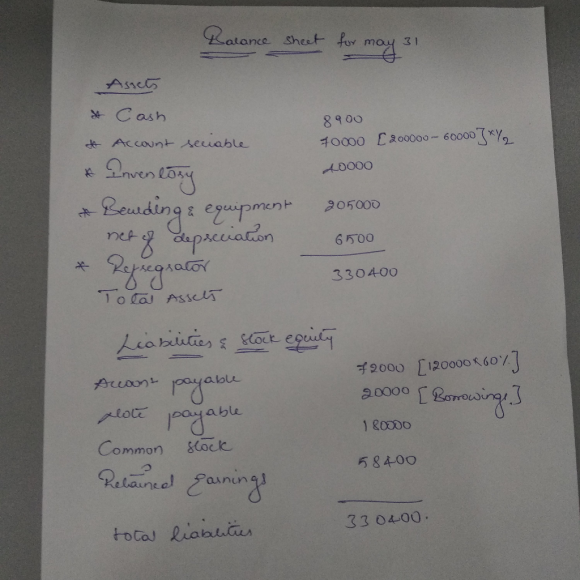 Balance sheet for may 31
Assets
* Cash 8900
* Account reciable 70000 [200000-60000]×1/2
* Inventory 40000
* Beuldings equipment 205000
net of depreciation 6500
* Refregrator 330400
Total Assets
Liabilities & stock equity
Account payable 72000 [120000×60%]
Note payable 20000 [Borrowings]
Common stock 180000
Retained earnings 58400
total liabilities 330400.